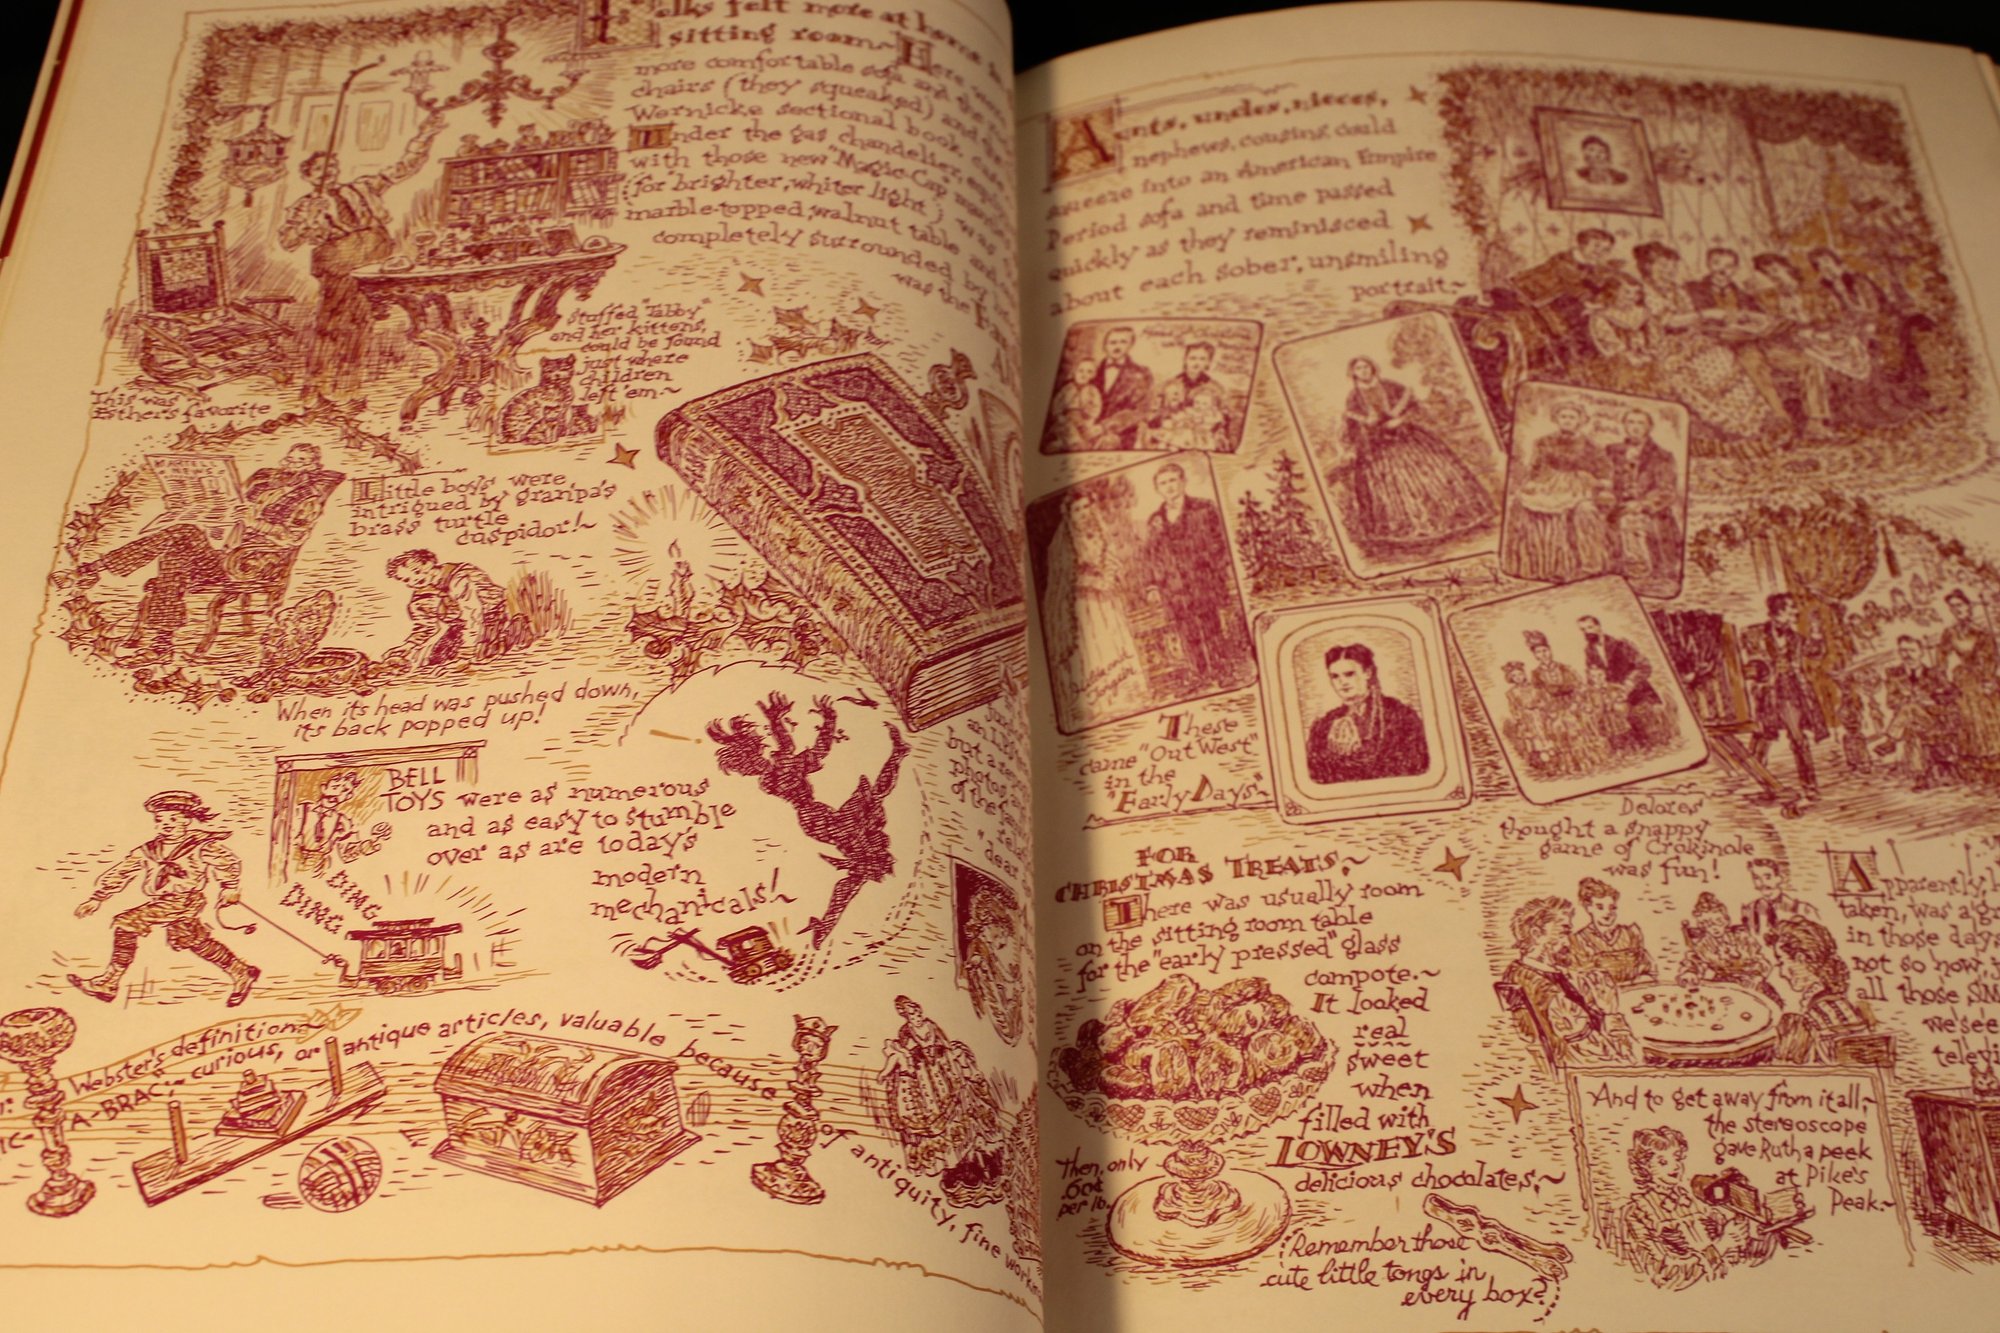 olks felt more at home
sitting room~ Here, were
more comfortable sofa and
chairs (they squeaked) and
Wernicke sectional book case
Under the gas chandelier,
with those new "Magic-Cap
(for brighter, whiter light) was
marble-topped, walnut table and
completely surrounded by
was the
Stuffed "Tabby"
and her kittens,
could be found
just where
children
left 'em~
This was
Esther's favorite
MARTELL
NEWS
Little boys were
intrigued by granpa's
brass turtle
cuspidor!~
When its head was pushed down,
its back popped up!
BELL
TOYS were as numerous
and as easy to stumble
over as are today's
modern
mechanicals!~
DING
DING
but a
photos,
of the
"dear
Webster's definition~
A-BRAC; curious, or antique articles, valuable because
of antiquity, fine work
Aunts, uncles, nieces,
nephews, cousins could
squeeze into an American Empire
Period sofa and time passed
quickly as they reminisced
about each sober, unsmiling
portrait~
These
came "Out West"
in the
"Early Days"~
Delores
thought a snappy
game of Crokinole
was fun!
FOR
CHRISTMAS TREATS,~
There was usually room
on the sitting room table
for the "early pressed" glass
compote.~
It looked
real
sweet
when
filled with
LOWNEY'S
delicious chocolates,~
Then, only
.60¢
per lb.
Remember those
cute little tongs in
every box?
Apparently,
taken, was a
in those days
not so now,
all those
we see
televi
And to get away from it all,~
the stereoscope
gave Ruth a peek
at Pike's
Peak.~